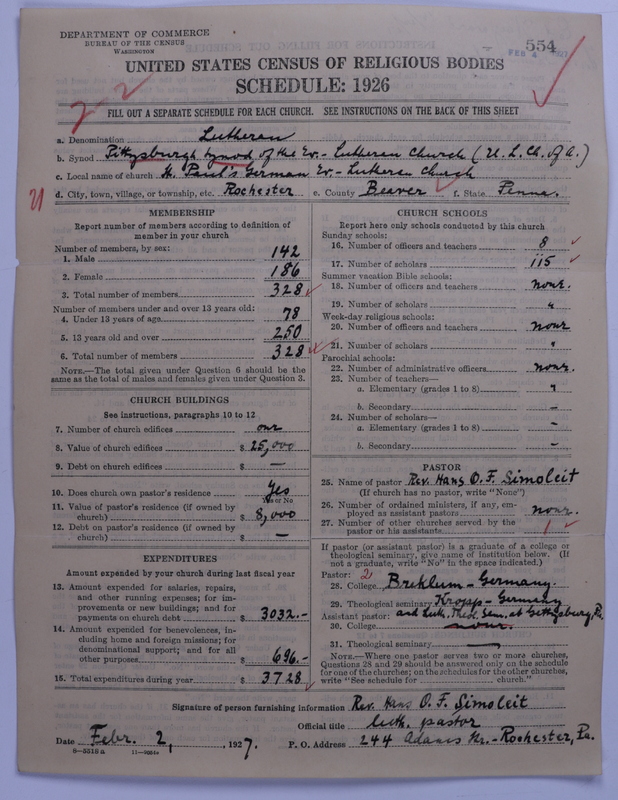 DEPARTMENT OF COMMERCE
BUREAU OF THE CENSUS
WASHINGTON
554
FEB 4 1927
UNITED STATES CENSUS OF RELIGIOUS BODIES
SCHEDULE: 1926
2-2
FILL OUT A SEPARATE SCHEDULE FOR EACH CHURCH. SEE INSTRUCTIONS ON THE BACK OF THIS SHEET
a. Denomination Lutheran
b. Synod Pittsburgh Synod of the Ev.- Lutheran Church (U. L. Ch. of A.)
c. Local name of church St. Paul's German Ev.- Lutheran Church
21
d. City, town, village, or township, etc. Rochester e. County Beaver f. State Penna.
MEMBERSHIP
Report number of members according to definition of member in your church
Number of members, by sex:
1. Male 142
2. Female 186
3. Total number of members 328
Number of members under and over 13 years old:
4. Under 13 years of age 78
5. 13 years old and over 250
6. Total number of members 328
NOTE.—The total given under Question 6 should be the same as the total of males and females given under Question 3.
CHURCH BUILDINGS
See instructions, paragraphs 10 to 12
7. Number of church edifices one
8. Value of church edifices $ 25,000
9. Debt on church edifices $ —
10. Does church own pastor's residence Yes
Yes or No
11. Value of pastor's residence (if owned by church) $ 8,000
12. Debt on pastor's residence (if owned by church) $ —
EXPENDITURES
Amount expended by your church during last fiscal year
13. Amount expended for salaries, repairs, and other running expenses; for improvements or new buildings; and for payments on church debt $ 3032.-
14. Amount expended for benevolences, including home and foreign missions; for denominational support; and for all other purposes $ 696.-
15. Total expenditures during year $ 3728
CHURCH SCHOOLS
Report here only schools conducted by this church
Sunday schools:
16. Number of officers and teachers 8
17. Number of scholars 115
Summer vacation Bible schools:
18. Number of officers and teachers none.
19. Number of scholars "
Week-day religious schools:
20. Number of officers and teachers none
21. Number of scholars "
Parochial schools:
22. Number of administrative officers none.
23. Number of teachers—
a. Elementary (grades 1 to 8) "
b. Secondary —
24. Number of scholars—
a. Elementary (grades 1 to 8) —
b. Secondary —
PASTOR
25. Name of pastor Rev. Hans O. F. Simoleit
(If church has no pastor, write "None")
26. Number of ordained ministers, if any, employed as assistant pastors none.
27. Number of other churches served by the pastor or his assistants 1
If pastor (or assistant pastor) is a graduate of a college or theological seminary, give name of institution below. (If not a graduate, write "No" in the space indicated.)
Pastor: 2
28. College Breklum - Germany.
29. Theological seminary Kropp - Germany
and Luth. Theol. Sem. at Gettysburg, Pa.
Assistant pastor:
30. College none.
31. Theological seminary —
NOTE.—Where one pastor serves two or more churches, Questions 28 and 29 should be answered only on the schedule for one of the churches; on the schedules for the other churches, write "See schedule for church."
Signature of person furnishing information Rev. Hans O. F. Simoleit
Official title luth. pastor
Date Febr. 2, 1927. P. O. Address 244 Adams Str.- Rochester, Pa.
6—5518 a